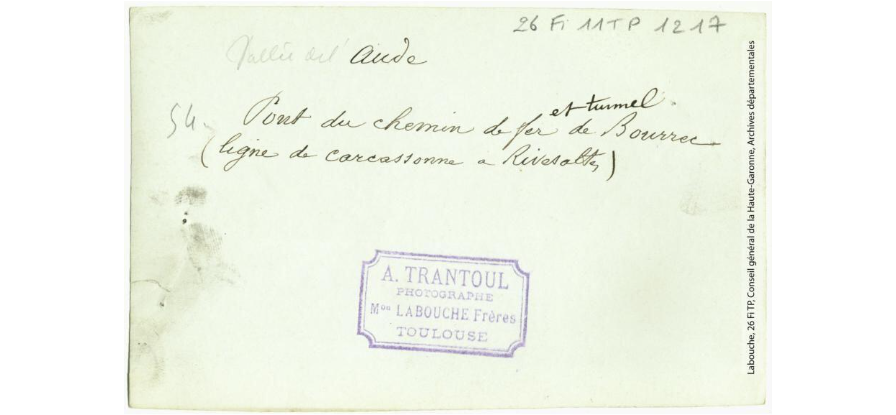 26 Fi 11 TP 1217
Vallée de l'Aude
54. Pont du chemin de fer et tunnel de Bourrec
(ligne de Carcassonne a Rivesaltes)
A. TRANTOUL
PHOTOGRAPHE
Mon LABOUCHE Frères
TOULOUSE
Labouche, 26 Fi TP, Conseil général de la Haute-Garonne, Archives départementales